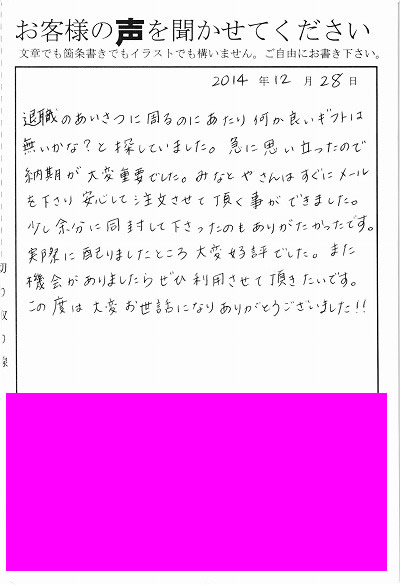 お客様の声を聞かせてください
文章でも箇条書きでもイラストでも構いません。ご自由にお書き下さい。
2014 年 12 月 28 日
退職のあいさつに周るのにあたり何か良いギフトは
無いかな?と探していました。急に思い立ったので
納期が大変重要でした。みなとやさんはすぐにメール
を下さり安心して注文させて頂く事ができました。
少し余分に同封して下さったのもありがたかったです。
実際に配りましたところ大変好評でした。また
機会がありましたらぜひ利用させて頂きたいです。
この度は大変お世話になりありがとうございました!!
切り取り線